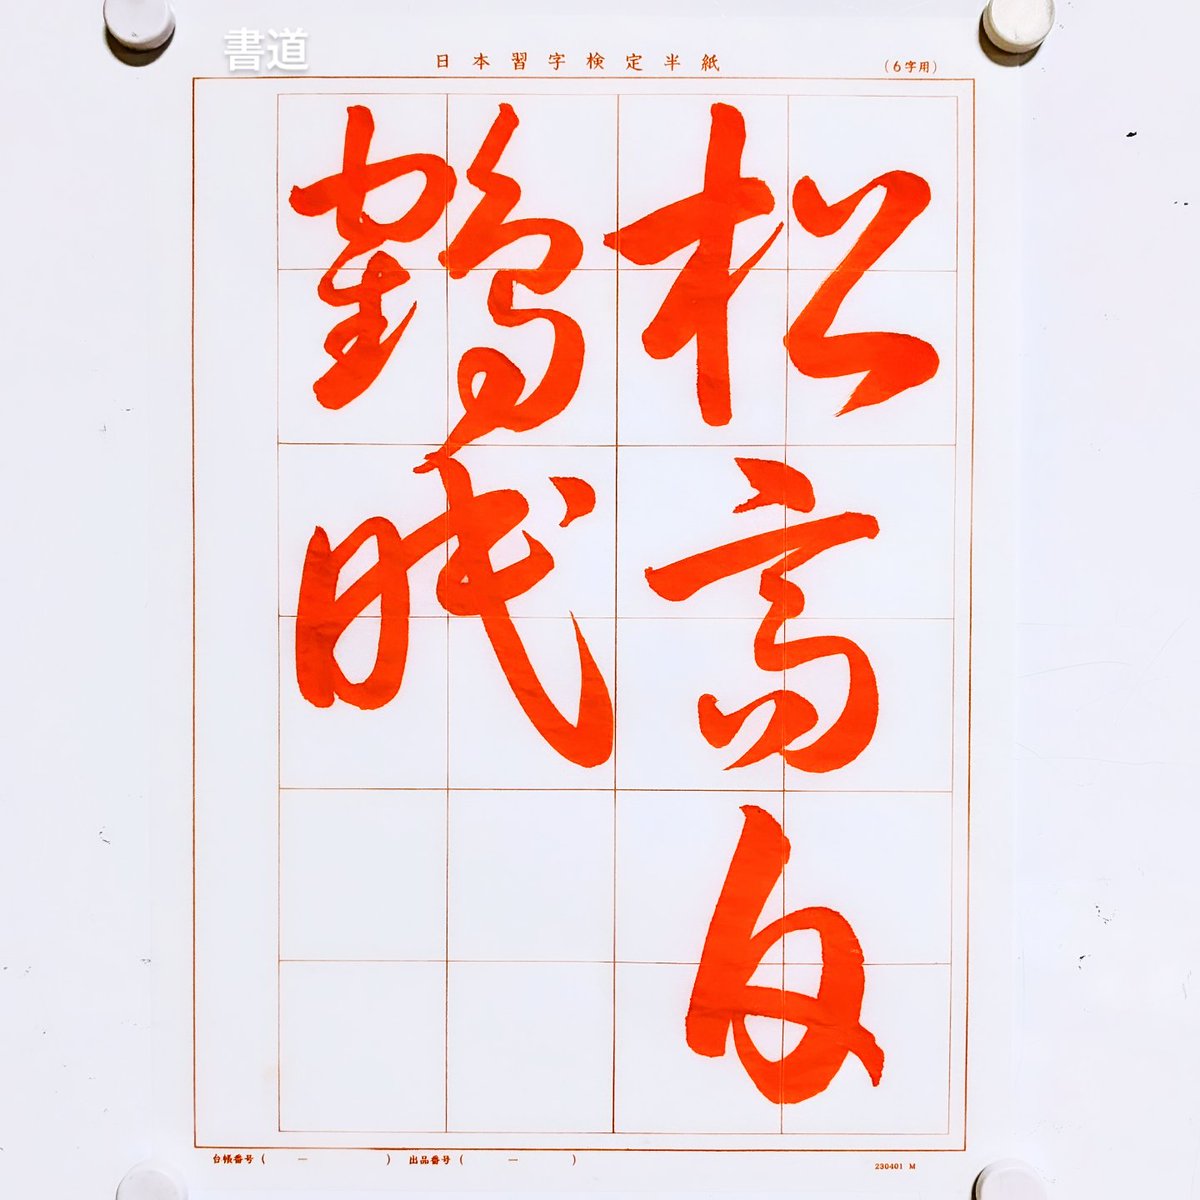 書道
日本習字検定半紙 (6字用)
松高白
鶴眠
台帳番号 ( − ) 出品番号 ( − )
230401 M